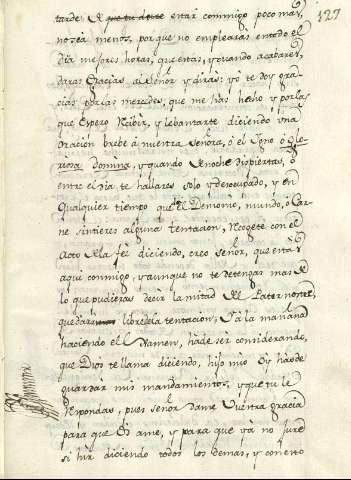 127
tarde. A que tu dexte estar conmigo poco mas,
no sea menos, porque no emplearàs en todo el
dia mejores horas, que estas, y quando acabares,
daras Gracias al señor y diràs: yo te doy gra-
cias por las mercedes, que me has hecho y por las
que espero recibir, y lebantarte diciendo una
oracion brebe à nuestra señora, ò el Igno ò Glo-
riosa Domina, y quando de noche dispiertas, ò
entre el dia te hallares solo y desocupado, y en
qualquier tiempo que el Demonio, mundo, ò Car-
ne sintieres alguna tentacion, recogete con el
Acto de la fe diciendo, creo señor, que estas
aqui conmigo, y aunque no te detengas mas de
lo que pudieras decir la mitad del Paternoster,
quedaràs libre de la tentacion, y à la mañana
haciendo el examen, hà de ser considerando,
que Dios te llama diciendo, hijo mio Oy has de
guardar mis mandamientos, y que tu le
respondas, pues señor dame Vuestra gracia
para que Os ame, y para que yà no jure
si hir diciendo todos los demas, y con esto